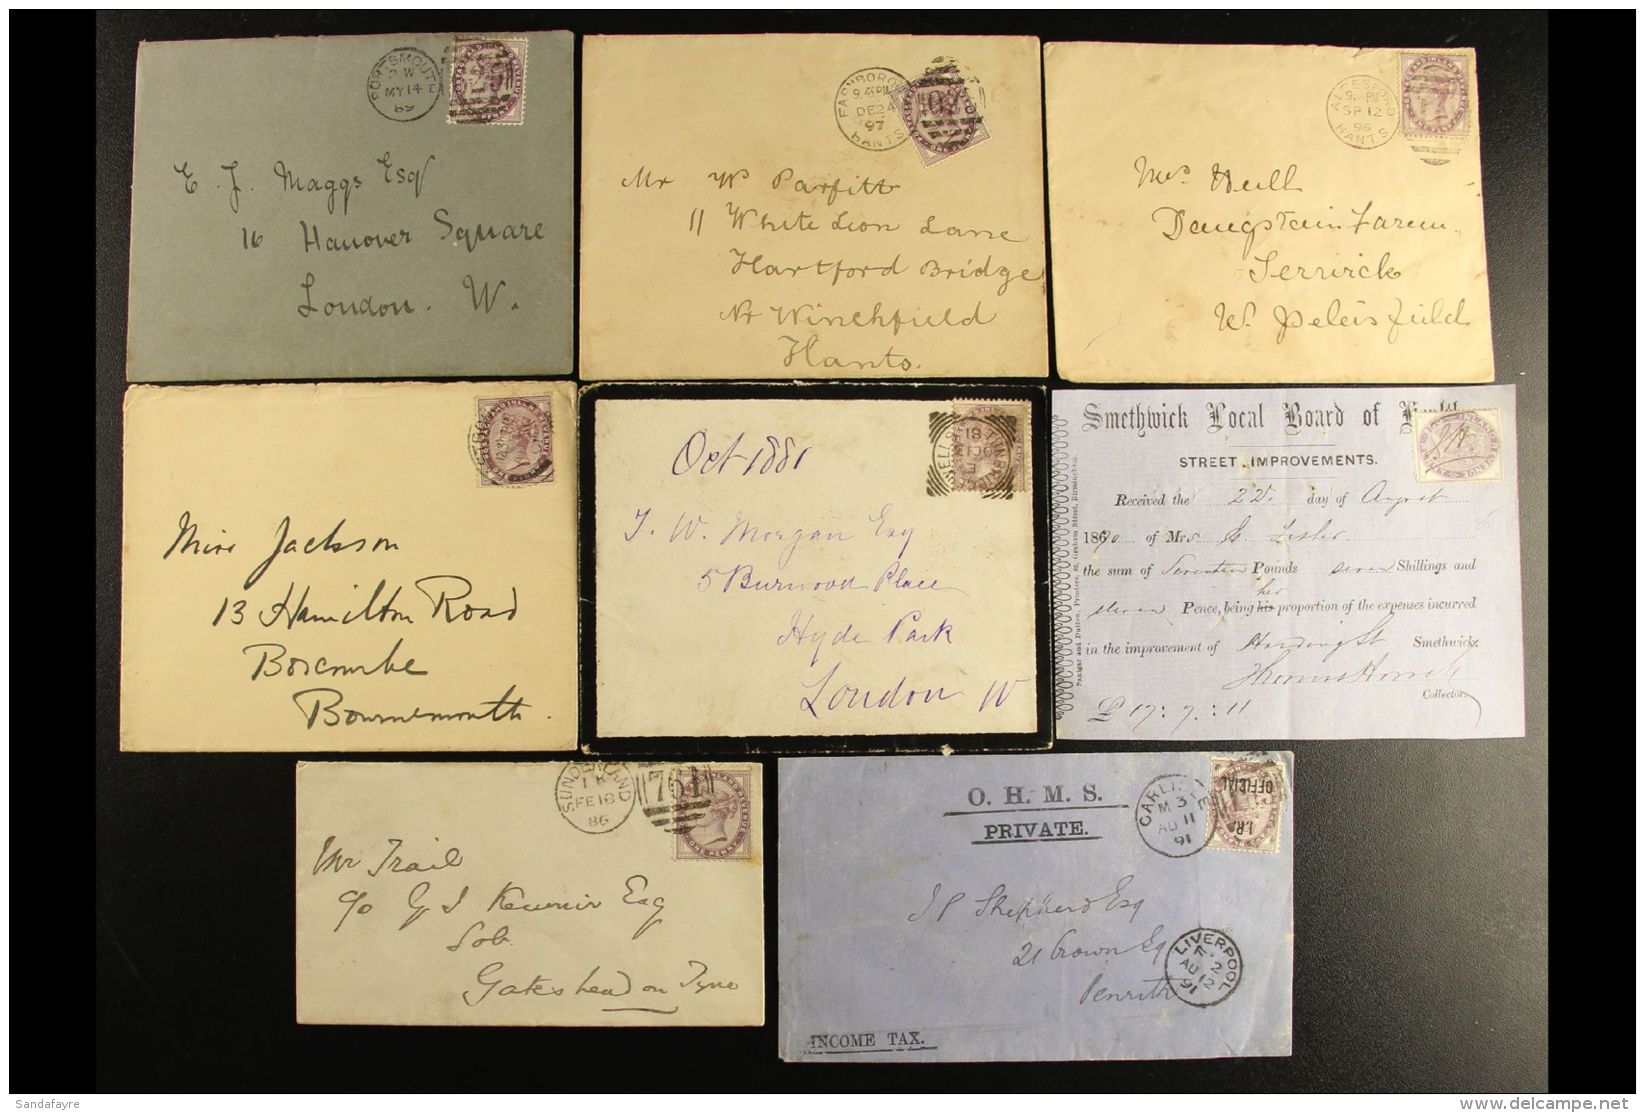 PORTSMOUTH
MY 14
89
E. J. Maggs Esq
16 Hanover Square
London. W.
FARNBORO
DE 24
97
HANTS
Mr W Parfitt
11 White Lion Lane
Hartford Bridge
Nr Winchfield
Hants.
ALRESFORD
SP 12
96
HANTS
Mrs. Hull
Farm
W. Petersfield
Miss Jackson
13 Hamilton Road
Boscombe
Bournemouth.
Oct 1881
WELLS
TUNBRIDGE
OC 18
81
T. W. Morgan Esq
5 Burwood Place
Hyde Park
London W
Smethwick Local Board of
STREET IMPROVEMENTS.
Received the 22. day of August
1870 of Mrs
the sum of Seventeen Pounds seven Shillings and
her
eleven Pence, being his proportion of the expenses incurred
in the improvement of St Smethwick.
Thomas
Collector
£ 17 : 7 : 11
SUNDERLAND
1 K
FE 18
86
761
ONE PENNY
Mr Trail
c/o G J Esq
Gateshead on Tyne
O. H. M. S.
PRIVATE.
CARLISLE
M 3
AU 11
91
I.R.
OFFICIAL
J P Shepherd Esq
21 Crown Sq
Penrith
LIVERPOOL
AU 12
91
INCOME TAX.
Sandafayre
www.delcampe.net